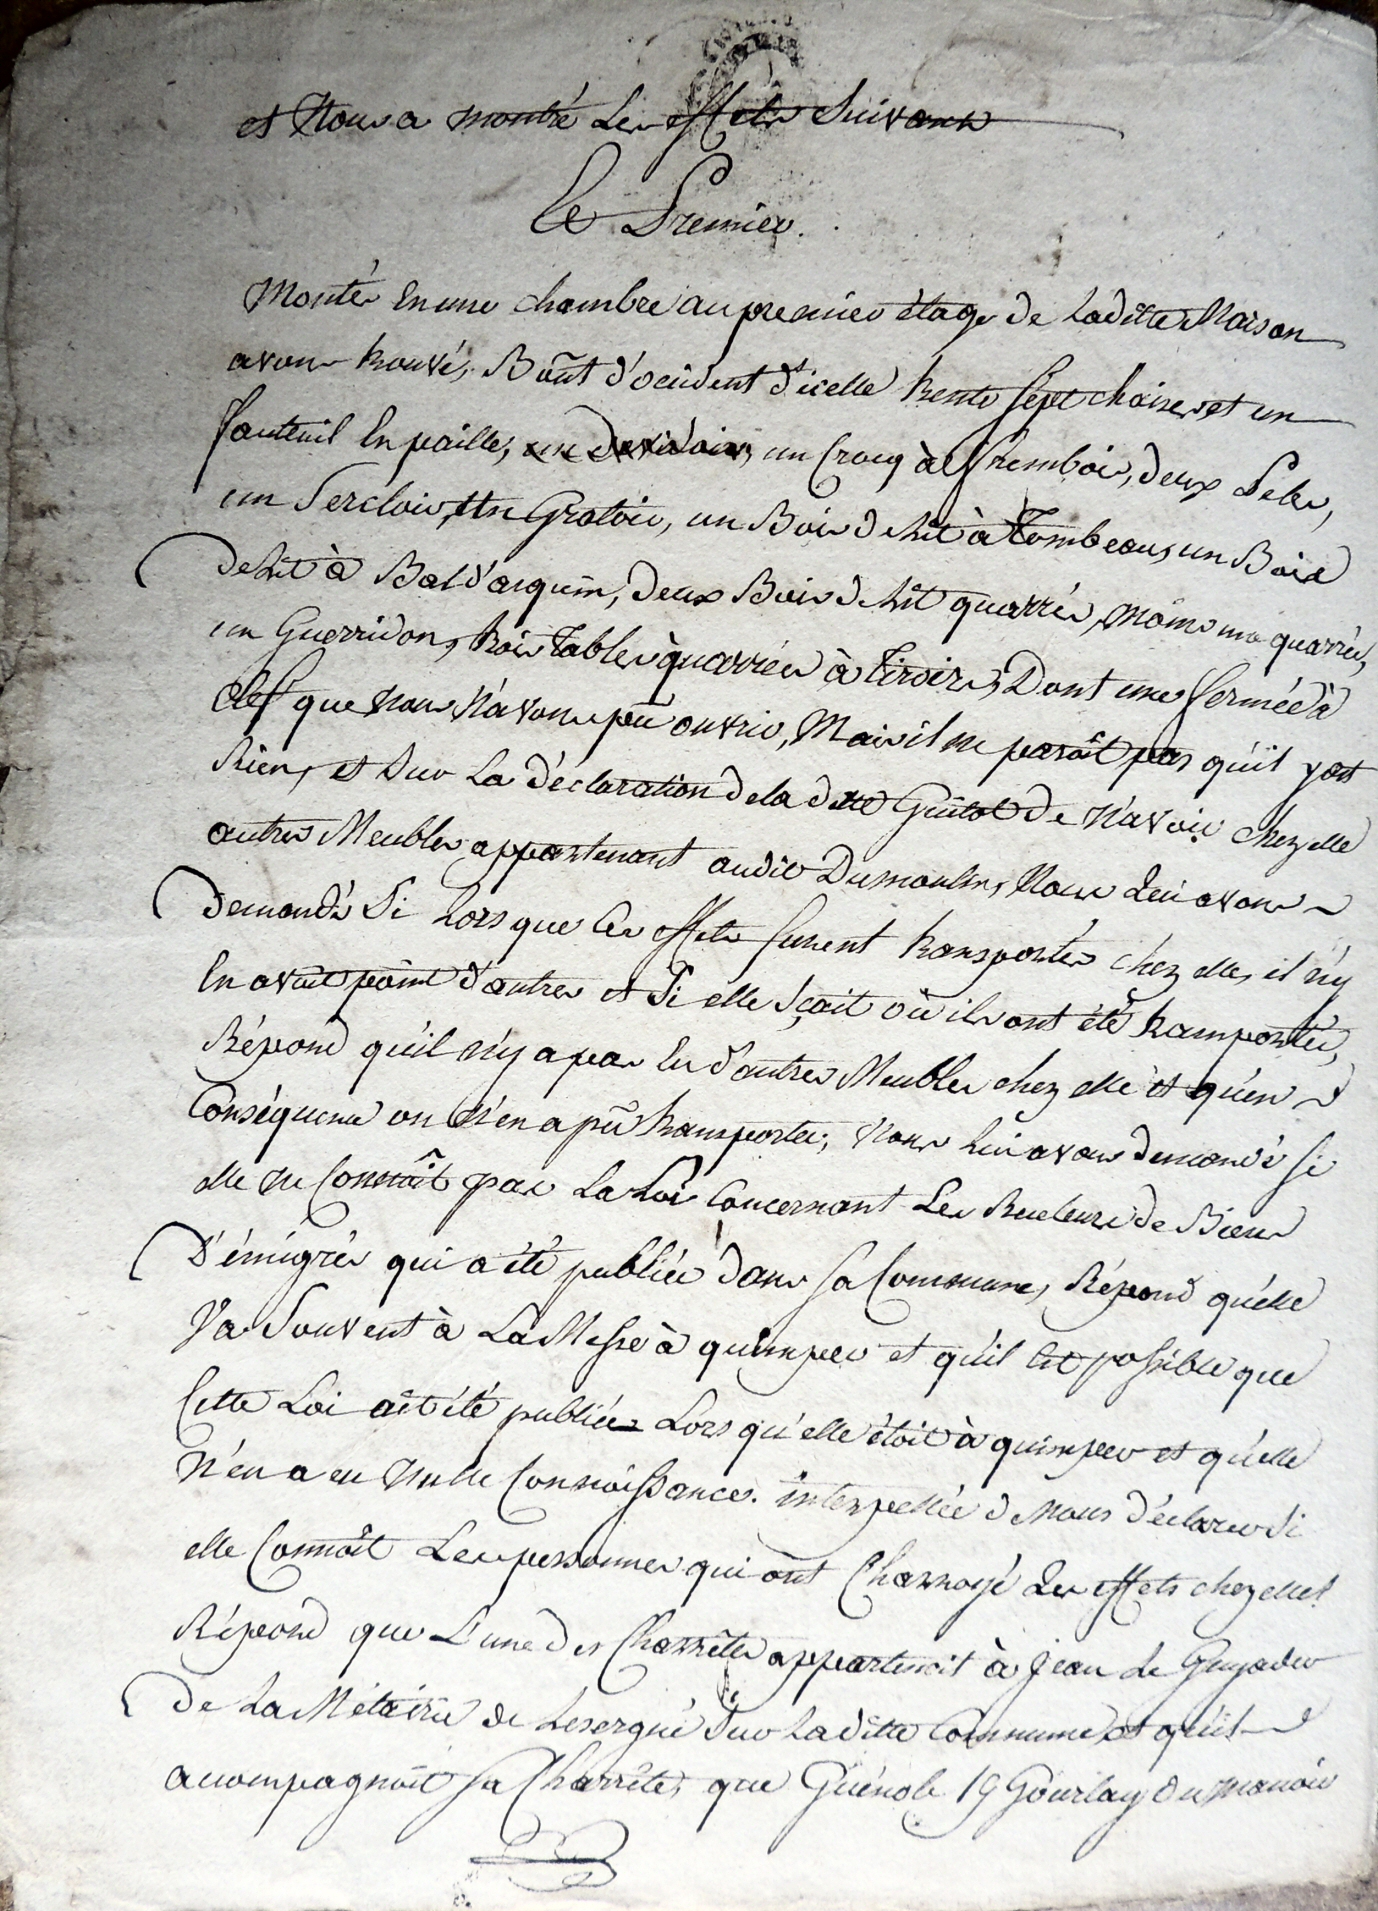 et Nous a montré Les effets Suivans
Le Premier.
Montés En une chambre au premier étage de Laditte Maison
avons trouvé, Bout d'occident d'icelle trente sept chaises et un
fauteuil En paille, un Devidoir, un Crocq à, deux Peles,
un Sercloir, Un Gratoir, un Bois de Lit à Tombeau, un Bois
de Lit à Baldarquin, Deux Bois de Lit quarrés, quarrée,
un Guerridon, trois Tables quarrées à Tiroirs, Dont une fermée à
Clef que Nous N'avons pû ouvrir, Mais il ne paroît pas qu'il y ait
Rien, et Sur La déclaration de la ditte Guitot De N'avoir chez elle
autres Meubles appartenant audit Dumoulin, Nous Lui avons
demandé Si Lors que Ces effets furent transportés chez elle, il n'y
En avoit point d'autres et Si elle Sçait où ils ont été transportés,
Répond qu'il n'y a pas Eu d'autres Meubles chez elle et qu'en
Conséquence on N'en a pû transporter; Nous Lui avons demandé si
elle ne Connoît pas La Loi Concernant Les Receleurs de Biens
D'émigrés qui a été publiée dans sa Commune, Répond qu'elle
Va Souvent à La Messe à quimper et qu'il Est possible que
Cette Loi ait été publiée Lors qu'elle étoit à quimper et qu'elle
N'en a eu Nulle Connoissance. interpellée de Nous déclarer Si
elle Connoît Les personnes qui ont Charroyé Les effets chez elle?
Répond que L'une des Charrêtes appartenoit à Jean Le Guyader
De La Métairie de Lesergué Sur Laditte Commune, et qu'il
accompagnoit sa Charrête, que Guénolé Le Gourlay du manoir